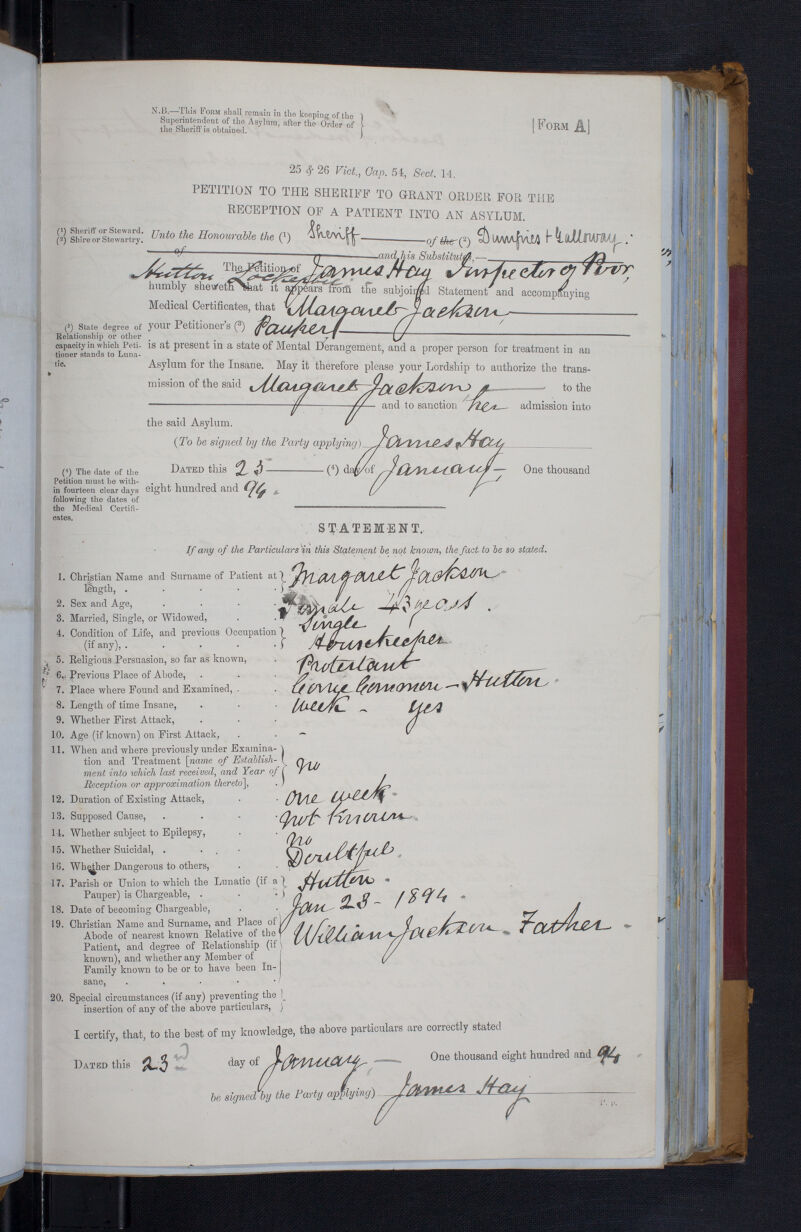 N.B.—This Form shall remain in the keeping of the
Superintendent of the Asylum, after the Order of
the Sheriff is obtained.
[Form A]
25 & 26 Vict., Cap. 54, Sect. 14.
PETITION TO THE SHERIFF TO GRANT ORDER FOR THE
RECEPTION OF A PATIENT INTO AN ASYLUM.
(1) Sheriff or Steward.
(2) Shire or Stewartry.
Unto the Honourable the (1) Sheriff of the (2) Dumfries & Galloway.
of and his Substitutes,—
Hutton Lockerbie The Petition of James Hay Inspector of Poor,
humbly sheweth that it appears from the subjoined Statement and accompanying
Medical Certificates, that Margaret Jackson
(3) State degree of
Relationship or other
capacity in which Peti-
tioner stands to Luna-
tic.
your Petitioner's (3) Pauper
is at present in a state of Mental Derangement, and a proper person for treatment in an
Asylum for the Insane. May it therefore please your Lordship to authorize the trans-
mission of the said Margaret Jackson to the
and to sanction her admission into
the said Asylum.
(To be signed by the Party applying) James Hay
(4) The date of the
Petition must be with-
in fourteen clear days
following the dates of
the Medical Certifi-
cates.
Dated this 23 (4) day of January One thousand
eight hundred and 94.
STATEMENT.
If any of the Particulars in this Statement be not known, the fact to be so stated.
1. Christian Name and Surname of Patient at
length, . Margaret Jackson
2. Sex and Age, Female 43 years.
3. Married, Single, or Widowed, Single
4. Condition of Life, and previous Occupation
(if any), . Housekeeper
5. Religious Persuasion, so far as known, Protestant
6. Previous Place of Abode,
7. Place where Found and Examined, Corrie Common - Hutton
8. Length of time Insane, week - yes
9. Whether First Attack,
10. Age (if known) on First Attack, -
11. When and where previously under Examina-
tion and Treatment [name of Establish-
ment into which last received, and Year of
Reception or approximation thereto], No
12. Duration of Existing Attack, One week
13. Supposed Cause, Not known
14. Whether subject to Epilepsy, No
15. Whether Suicidal, Doubtful
16. Whether Dangerous to others,
17. Parish or Union to which the Lunatic (if a
Pauper) is Chargeable, . Hutton
18. Date of becoming Chargeable, Jan 23 - 1894
19. Christian Name and Surname, and Place of
Abode of nearest known Relative of the
Patient, and degree of Relationship (if
known), and whether any Member of
Family known to be or to have been In-
sane, William Jackson - Father
20. Special circumstances (if any) preventing the
insertion of any of the above particulars,
I certify, that, to the best of my knowledge, the above particulars are correctly stated
Dated this 23rd day of January One thousand eight hundred and 94
be signed by the Party applying) James Hay